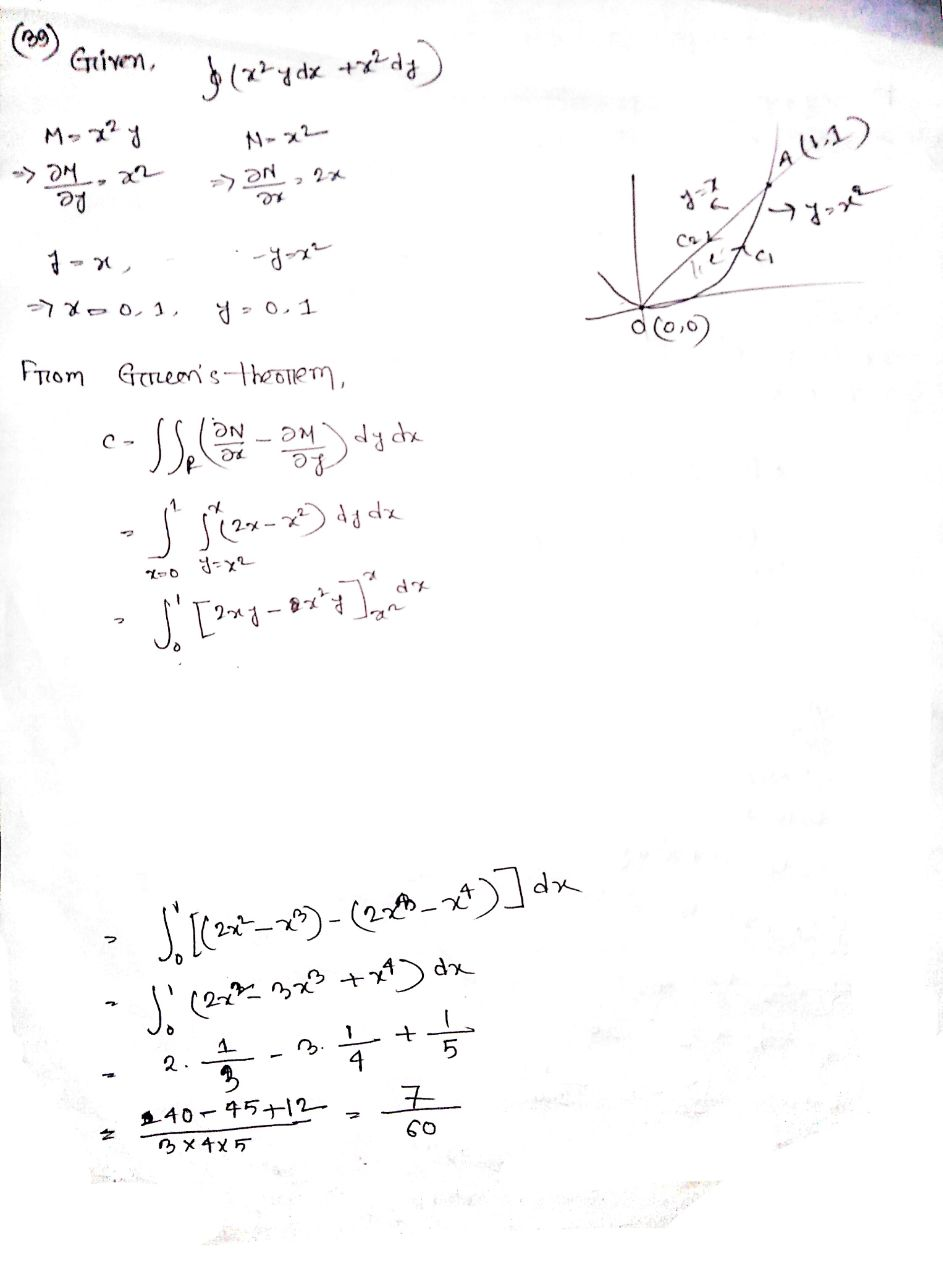 (39) Given, ∮(x²ydx + x²dy)
M = x²y N = x²
⇒ ∂M/∂y = x² ⇒ ∂N/∂x = 2x
y = x, y = x²
⇒ x = 0, 1, y = 0, 1
A (1,1)
y = x
→ y = x²
C2
C1
O (0,0)
From Green's theorem,
C = ∬R (∂N/∂x − ∂M/∂y) dy dx
= ∫ x=0 1 ∫ y=x² x (2x − x²) dy dx
= ∫₀¹ [2xy − x²y] x² x dx
= ∫₀¹ [(2x² − x³) − (2x³ − x⁴)] dx
= ∫₀¹ (2x² − 3x³ + x⁴) dx
= 2. 1/3 − 3. 1/4 + 1/5
= 40 − 45 + 12 / 3 × 4 × 5 = 7/60